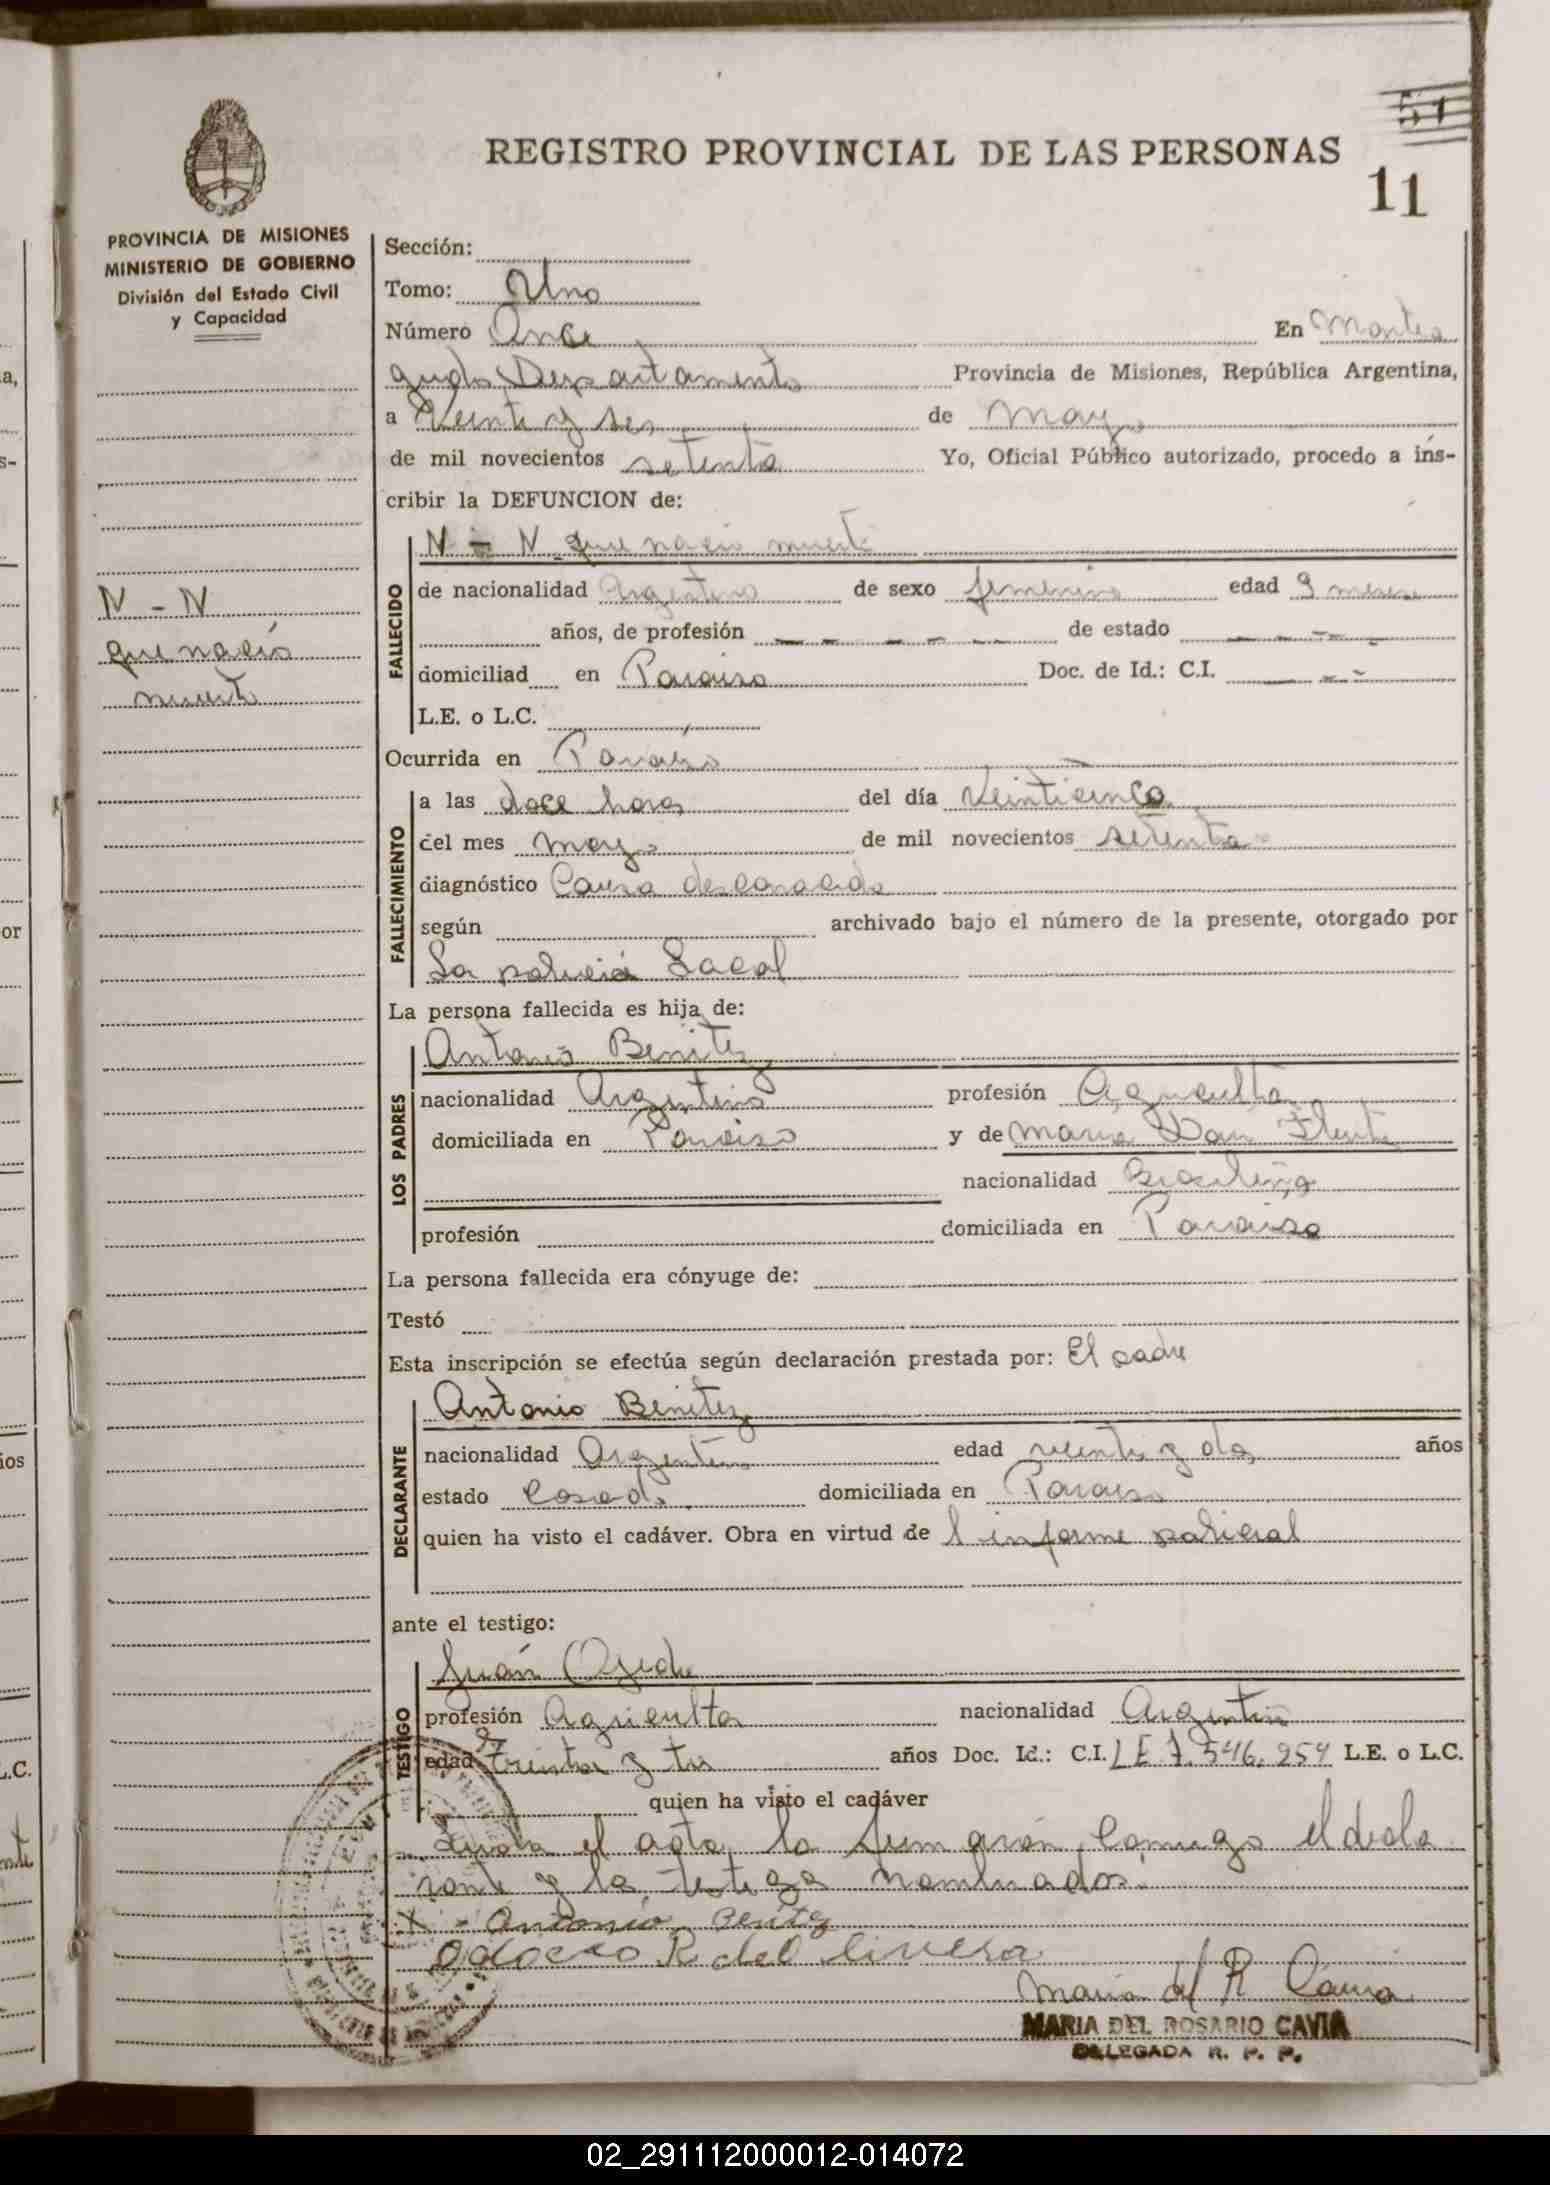 51
REGISTRO PROVINCIAL DE LAS PERSONAS
11
PROVINCIA DE MISIONES
MINISTERIO DE GOBIERNO
División del Estado Civil
y Capacidad
N - N
que nació
muerta
Sección:
Tomo: Uno
Número Once En Montea
gudo Departamento Provincia de Misiones, República Argentina,
a Veinte y seis de mayo
de mil novecientos setenta Yo, Oficial Público autorizado, procedo a ins-
cribir la DEFUNCION de:
N - N que nació muerta
FALLECIDO
de nacionalidad Argentina de sexo femenino edad 9 meses
años, de profesión de estado
domiciliad en Paraiso Doc. de Id.: C.I.
L.E. o L.C.
Ocurrida en Paraiso
FALLECIMIENTO
a las doce horas del día Veinticinco
del mes mayo de mil novecientos setenta
diagnóstico Causa desconocida
según archivado bajo el número de la presente, otorgado por
La policia Local
La persona fallecida es hija de:
LOS PADRES
Antonio Benitez
nacionalidad Argentino profesión Agricultor
domiciliada en Paraiso y de Maria
nacionalidad Brasileña
profesión domiciliada en Paraiso
La persona fallecida era cónyuge de:
Testó
Esta inscripción se efectúa según declaración prestada por: El padre
DECLARANTE
Antonio Benitez
nacionalidad Argentino edad veinte y dos años
estado Casado domiciliada en Paraiso
quien ha visto el cadáver. Obra en virtud de l informe policial
ante el testigo:
TESTIGO
Juán
profesión Agricultor nacionalidad Argentino
edad treinta y tres años Doc. Id.: C.I. LE 7.546.254 L.E. o L.C.
quien ha visto el cadáver
Leida el acta, la firmarón, conmigo el decla
rante y la testigo nombrados.
X - Antonio Benitez
R del
Maria del R Cavia
MARIA DEL ROSARIO CAVIA
DELEGADA R. P. P.
02_291112000012-014072